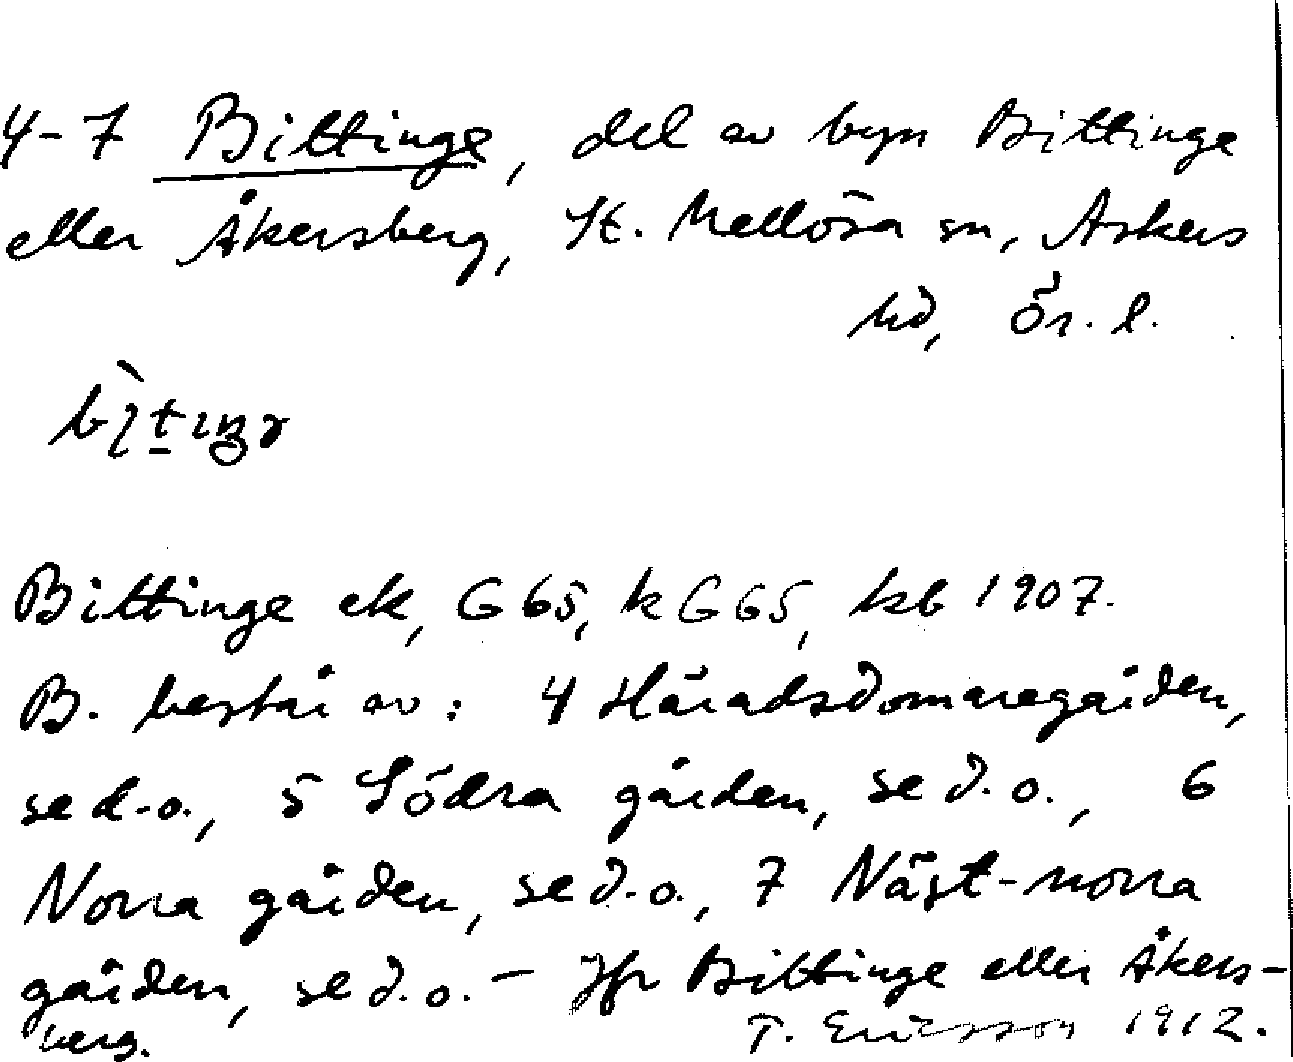 4-7 Bittinge, del av byn Bittinge
eller Åkersberg, St. Mellösa sn, Askers
hd, Ör. l.
Bittinge ek, G 65, k G 65, kb 1907.
B. består av: 4 Häradsdomaregården,
se d.o., 5 Södra gården, se d.o., 6
Norra gården, se d.o., 7 Näst-norra
gården, se d.o. – Jfr Bittinge eller Åkers-
berg.
T. Ericsson 1912.